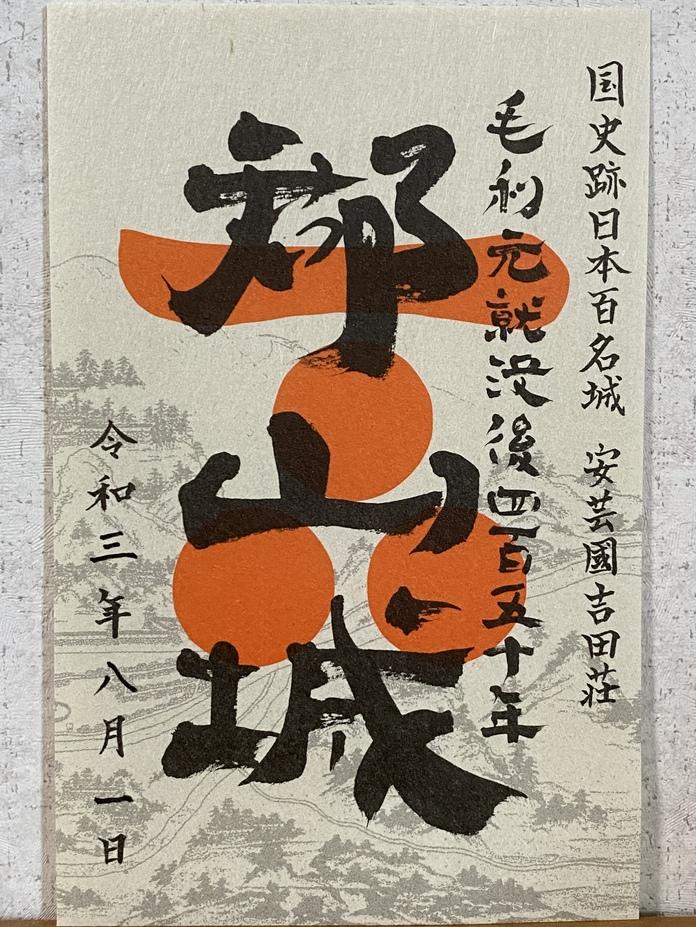 国史跡日本百名城　安芸國吉田荘
毛利元就没後四百五十年
郡山城
令和三年八月一日